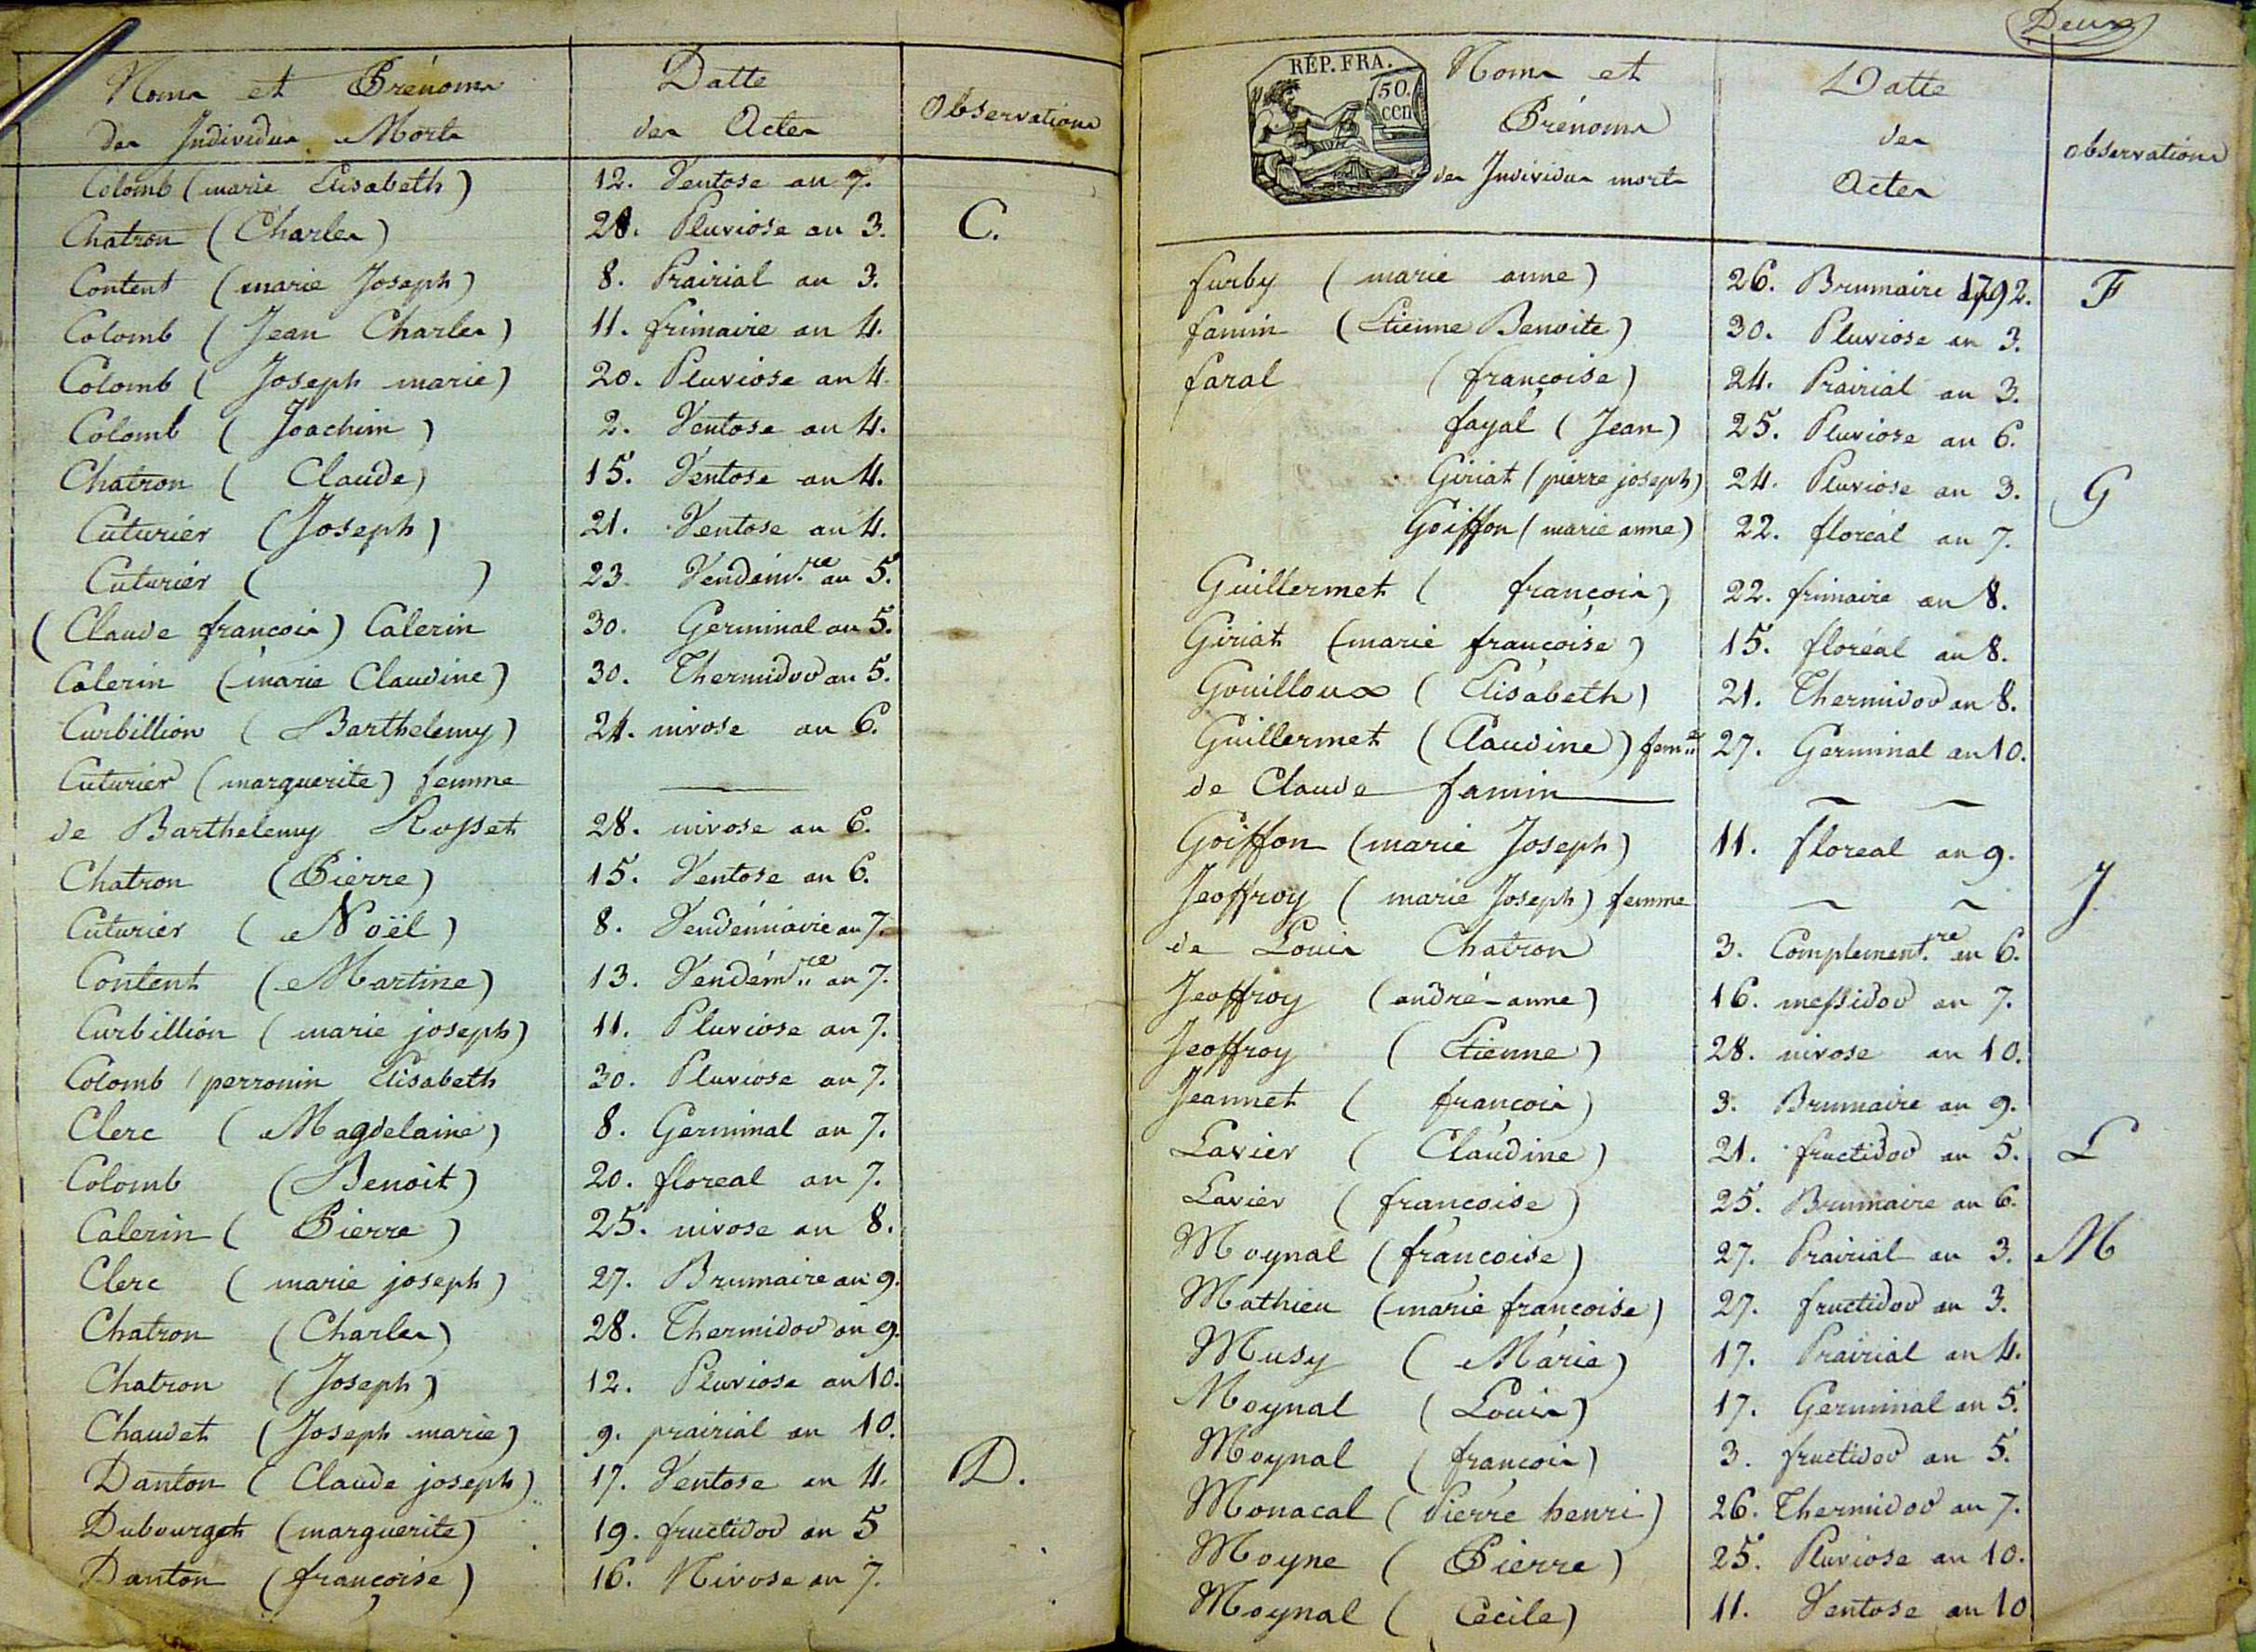 Noms et Prénoms
des Individus Morts
Datte
des Actes
Observations
Colomb (marie Elisabeth) 12. Ventose an 7.
Chatron (Charles) 28. Pluviose an 3. C.
Content (marie Joseph) 8. Prairial an 3.
Colomb (Jean Charles) 11. frimaire an 4.
Colomb (Joseph marie) 20. Pluviose an 4.
Colomb (Joachim) 2. Ventose an 4.
Chatron (Claude) 15. Ventose an 4.
Cuturier (Joseph) 21. Ventose an 4.
Cuturier ( ) 23. Vendém.re an 5.
(Claude françois) Calerin 30. Germinal an 5.
Calerin (marie Claudine) 30. Thermidod an 5.
Curbillion (Barthelemy) 24. nivose an 6.
Cuturier (marguerite) femme
de Barthelemy Rosset 28. nivose an 6.
Chatron (Pierre) 15. Ventose an 6.
Cuturier (Noël) 8. Vendémiaire an 7.
Content (Martine) 13. Vendém.re an 7.
Curbillion (marie joseph) 11. Pluviose an 7.
Colomb (perronin Elisabeth 30. Pluviose an 7.
Clerc (Magdelaine) 8. Germinal an 7.
Colomb (Benoit) 20. floreal an 7.
Calerin (Pierre) 25. nivose an 8.
Clerc (marie joseph) 27. Brumaire an 9.
Chatron (Charles) 28. Thermidod an 9.
Chatron (Joseph) 12. Pluviose an 10.
Chaudet (Joseph marie) 9. prairial an 10.
Danton (Claude joseph) 17. Ventose an 4. D.
Dubourget (marguerite) 19. fructidod an 5
Danton (françoise) 16. Nivose an 7.
Deux
RÉP. FRA.
50.
cen
Noms et
Prénoms
des Individus morts
Datte
des
Actes
observations
furby (marie anne) 26. Brumaire 1792. F
famin (Etienne Benoite) 30. Pluviose an 3.
faral (françoise) 24. Prairial an 3.
fayal (Jean) 25. Pluviose an 6.
Giriat (pierre joseph) 24. Pluviose an 3. G
Goiffon (marie anne) 22. floréal an 7.
Guillermet (françois) 22. frimaire an 8.
Giriat (marie françoise) 15. floréal an 8.
Gouilloux (Elisabeth) 21. Thermidod an 8.
Guillermet (Claudine) fem.e 27. Germinal an 10.
de Claude famin
Goiffon (marie Joseph) 11. floreal an 9.
Jeoffroy (marie Joseph) femme J.
de Louis Chatron 3. Complement.re an 6.
Jeoffroy (andré-anne) 16. messidod an 7.
Jeoffroy (Etienne) 28. nivose an 10.
Jeannet (françois) 3. Brumaire an 9.
Lavier (Claudine) 21. fructidod an 5. L
Lavier (francoise) 25. Brumaire an 6.
Moynal (françoise) 27. Prairial an 3. M
Mathieu (marie françoise) 27. fructidod an 3.
Musy (Marie) 17. Prairial an 4.
Moynal (Louis) 17. Germinal an 5.
Moynal (françois) 3. fructidod an 5.
Monacal (Pierre henri) 26. Thermidod an 7.
Moyne (Pierre) 25. Pluviose an 10.
Moynal (Cécile) 11. Ventose an 10